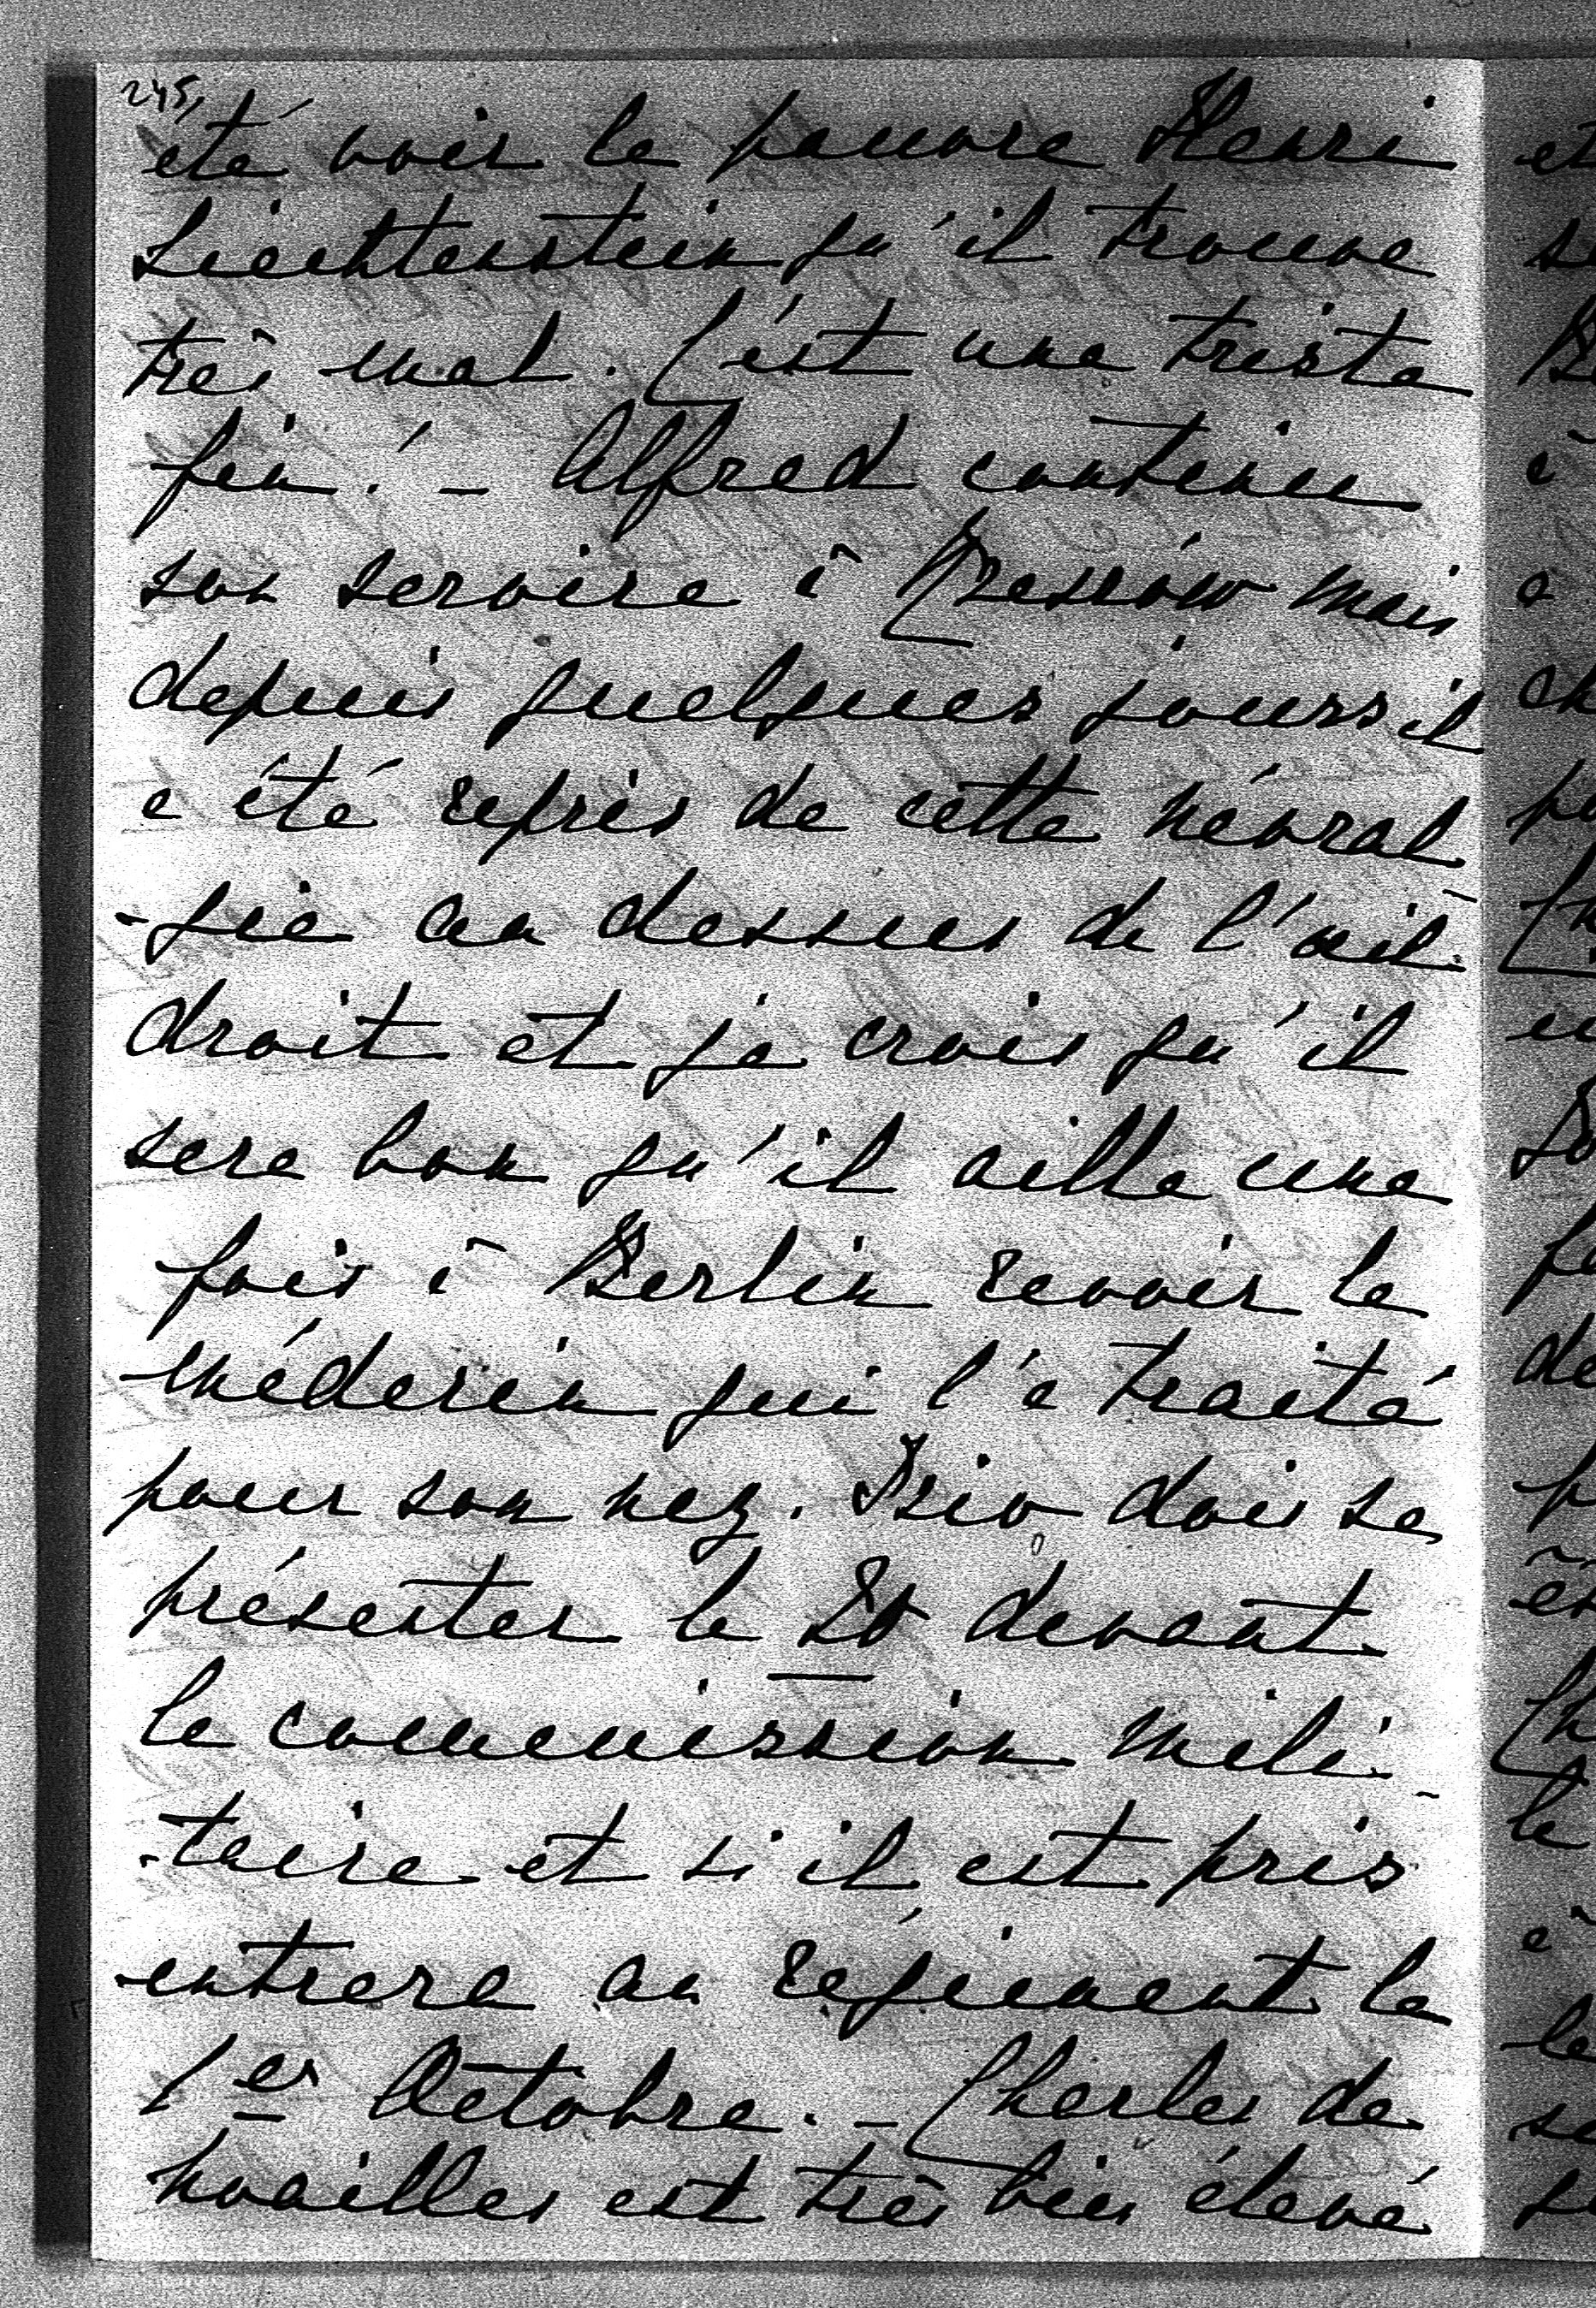 245,
été voir le pauvre Henri
Liechtenstein qu'il trouve
très mal. C'est une triste
fin! – Alfred continue
son service à Rzeszów mais
depuis quelques jours il
a été repris de cette névral-
-gie au dessus de l'œil
droit et je crois qu'il
sera bon qu'il aille une
fois à Berlin revoir le
médecin qui l'a traité
pour son nez. doit se
présenter le 20 devant
la commission mili-
-taire et si il est pris
entrera au régiment le
1er Octobre. – Charles de
Noailles est très bien élevé